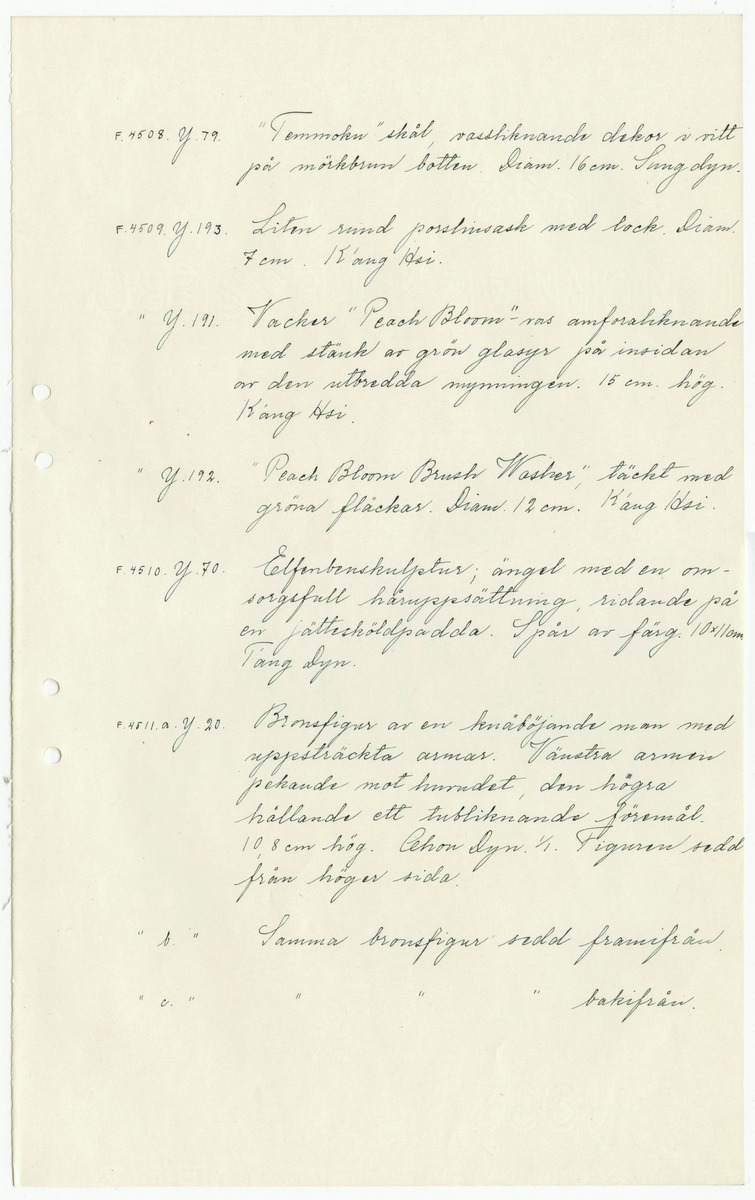 F.4508. Y. 79. "Temmoku" skål, vassliknande dekor i vitt
på mörkbrun botten. Diam. 16 cm. Sung dyn.
F.4509. Y. 193. Liten rund porslinsask med lock. Diam.
7 cm. K'ang Hsi.
" Y. 191. Vacker "Peach Bloom"-vas amforaliknande
med stänk av grön glasyr på insidan
av den utbredda mynningen. 15 cm. hög.
K'ang Hsi.
" Y. 192. "Peach Bloom Brush Washer", täckt med
gröna fläckar. Diam. 12 cm. K'ang Hsi.
F.4510. Y. 70. Elfenbenskulptur; ängel med en om-
sorgsfull håruppsättning, ridande på
en jättesköldpadda. Spår av färg. 10×11 cm
T'ang Dyn.
F.4511.a. Y. 20. Bronsfigur av en knäböjande man med
uppsträckta armar. Vänstra armen
pekande mot huvudet, den högra
hållande ett tubliknande föremål.
10,8 cm hög. Chou Dyn. 1/1. Figuren sedd
från höger sida.
" b. " Samma bronsfigur sedd framifrån.
" c. " " " " bakifrån.